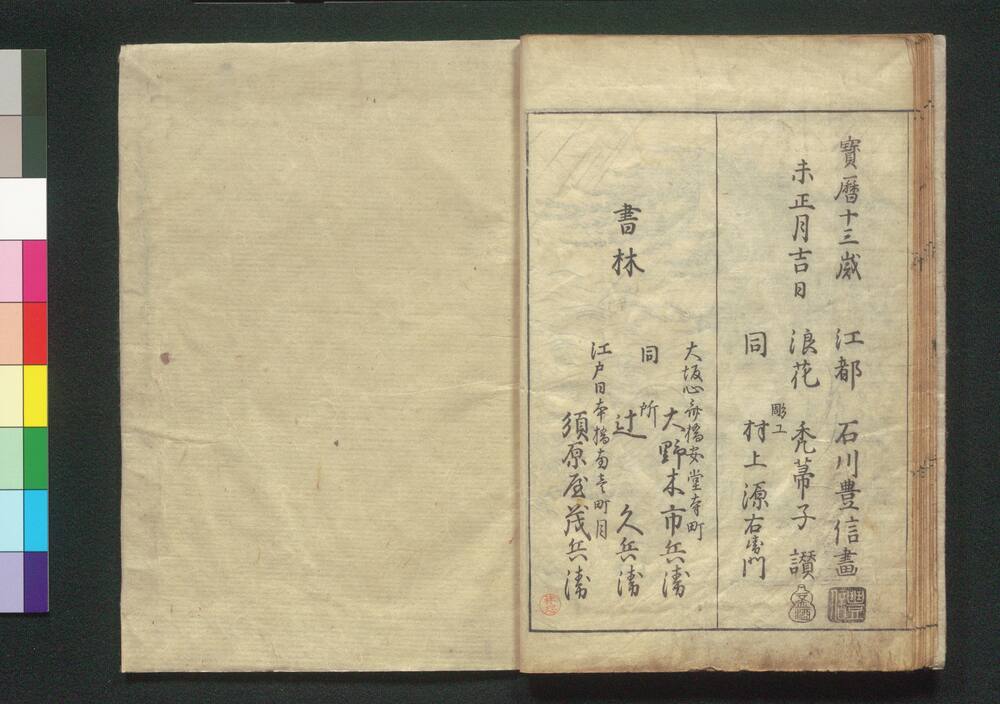 寶暦十三歳
未正月吉日
江都 石川豊信畫
浪花 禿帚子 讃
同 彫工 村上源右衛門
書林
大坂心斎橋安堂寺町
大野木市兵衛
同所
辻 久兵衛
江戸日本橋南壱町目
須原屋茂兵衛